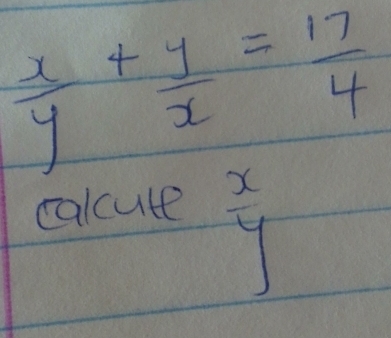 x/y + y/x = 17/4
calcute x/y